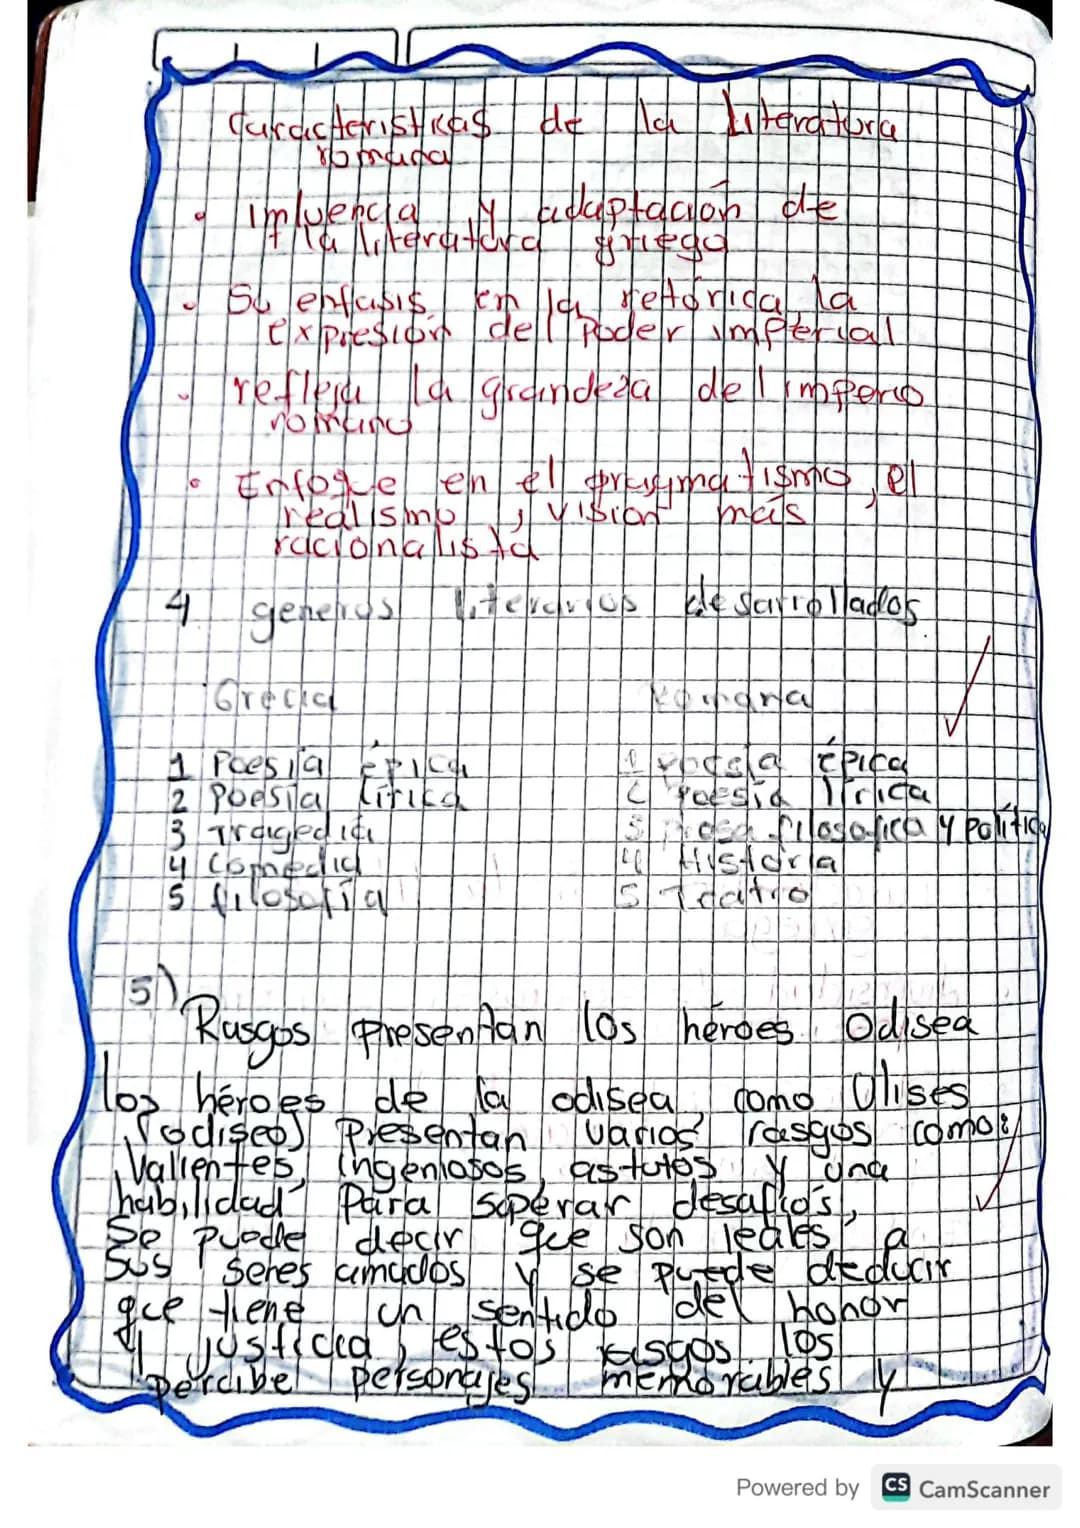 Caracteristicas de la Literatura
romana
• influencia y adaptación de
la literatura griega
• Su enfasis en la retórica la
expresión del poder imperial
• refleja la grandeza del imperio
romano
• Enfoque en el pragmatismo, el
realismo, visión más
racionalista
4 generos literarios desarrollados
Grecia Romana
1 Poesía épica 1 poesía épica
2 Poesía lírica 2 Poesía lírica
3 Tragedia 3 Prosa filosofica y Política
4 Comedia 4 Historia
5 filosofía 5 Teatro
5)
Rasgos presentan los héroes Odisea
los héroes de la odisea, como Ulises
(odiseo) Presentan varios rasgos como:
Valientes, ingeniosos, astutos y una
habilidad Para superar desafíos,
Se puede decir que son leales a
Sus seres amados y se puede deducir
que tiene un sentido del honor
y justicia, estos rasgos los
percibe personajes memorables y
Powered by CS CamScanner